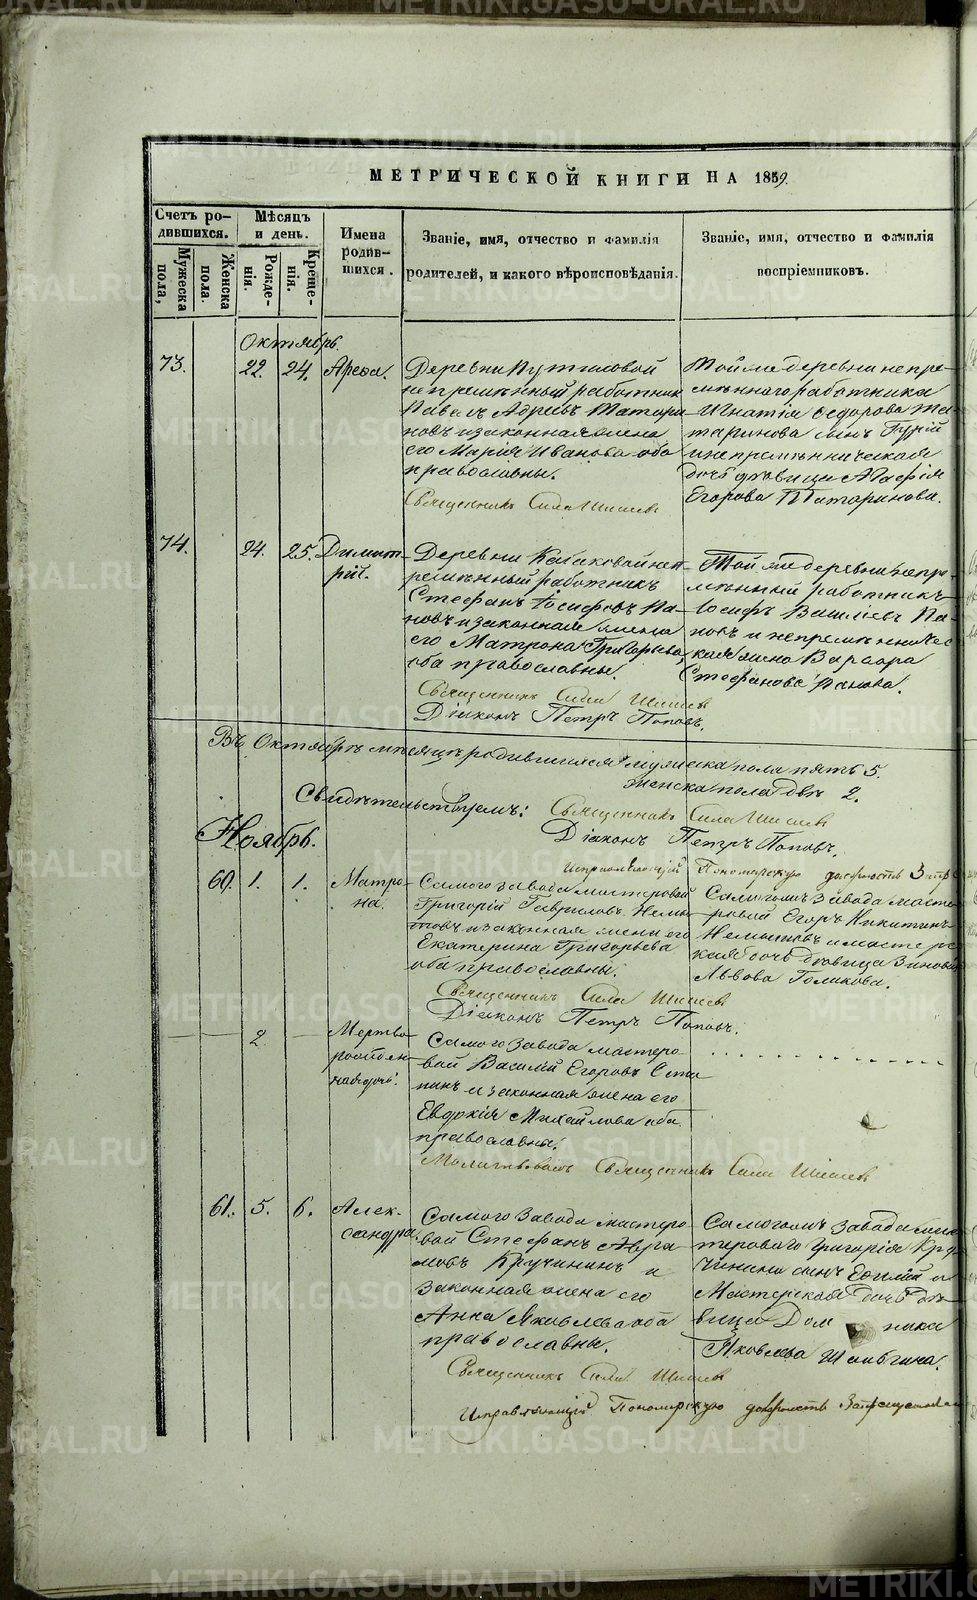 МЕТРИЧЕСКОЙ КНИГИ НА 1859.
Счетъ ро-
дившихся.
Мужеска пола,
Женска пола.
Мѣсяцъ
и день.
Рожде-
нія.
Креще-
нія.
Имена
родив-
шихся.
Званіе, имя, отчество и фамилія
родителей, и какого вѣроисповѣданія.
Званіе, имя, отчество и фамилія
воспріемниковъ.
Октябрь.
73. 22. 24. Арефа.
Деревни Путиловой
непремѣнный работник
Павелъ Татари
новъ и законная жена
его Марія Иванова оба
православны.
Священникъ Сила Шишевъ
Той же деревни непре-
мѣннаго работника
Игнатія Федорова Та
таринова сынъ Гурій
и непремѣнническая
дочь дѣвица Агафія
Егорова Татаринова.
74. 24. 25. Димит-
рій.
Деревни Кабаковой неп-
ремѣнный работникъ
Стефанъ Іосифовъ Па-
новъ и законная жена
его Матрона Григорьева,
оба православны.
Священникъ Сила Шишевъ
Діаконъ Петръ Поповъ.
Той же деревни непре-
мѣнный работникъ
Іосифъ Васильевъ Па-
новъ и непремѣнничес
кая жена Варвара
Стефанова Панова.
Въ Октябрѣ мѣсяцѣ родившихся мужеска пола пять 5.
женска пола двѣ 2.
Свидѣтельствуемъ: Священникъ Сила Шишевъ
Діаконъ Петръ Поповъ.
Ноябрь.
Исправляющій Пономарскую должность
60. 1. 1. Матро-
на.
Самого завода мастеровой
Григорій Гавриловъ
и законная жена его
Екатерина Григорьева
оба православны.
Священникъ Сила Шишевъ
Діаконъ Петръ Поповъ.
Самого завода масте-
ровой Егоръ Никитинъ
и мастерс
кая дочь дѣвица
Львова Голикова.
2. Мертво-
рожден-
ная дочь.
Самого завода мастеро-
вой Василій Егоровъ
и законная жена его
Евдокія Михайлова оба
православны.
Молитвовалъ Священникъ Сила Шишевъ
61. 5. 6. Алек-
сандра.
Самого завода мастеро-
вой Стефанъ Авра-
мовъ Кручининъ и
законная жена его
Анна Яковлева оба
православны.
Священникъ Сила Шишевъ
завода мас
тероваго Григорія Кру
чинина сынъ и
Мастерская дочь дѣ-
вица Домника
Яковлева
Исправляющій Пономарскую должность